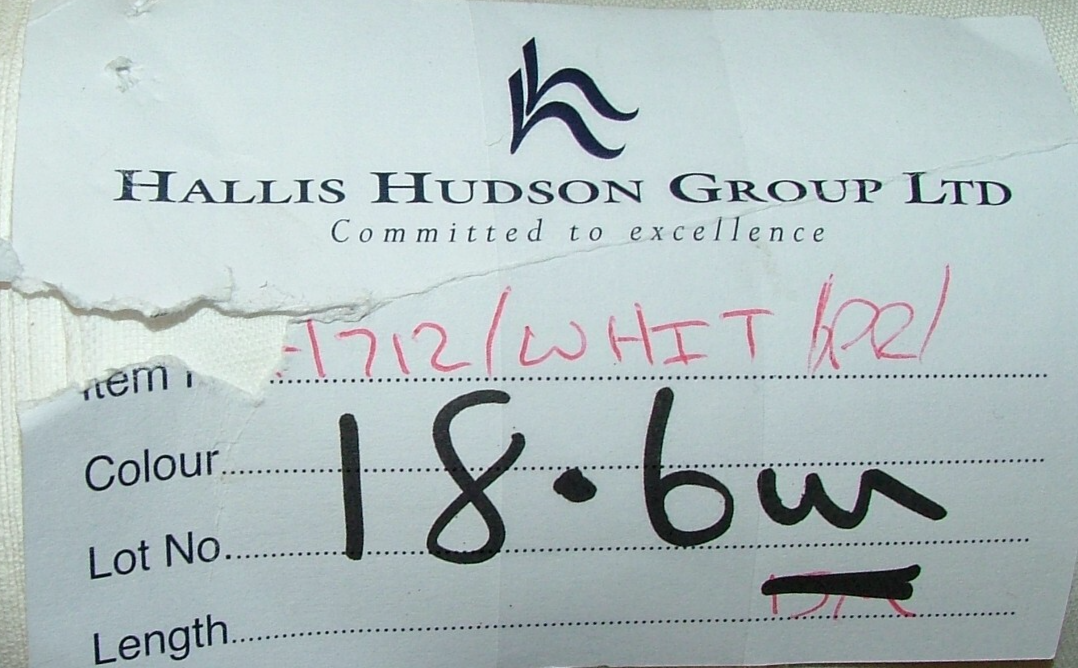 HALLIS HUDSON GROUP LTD
Committed to excellence
Item 1712/WHIT
Colour
18.6m
Lot No.
Length